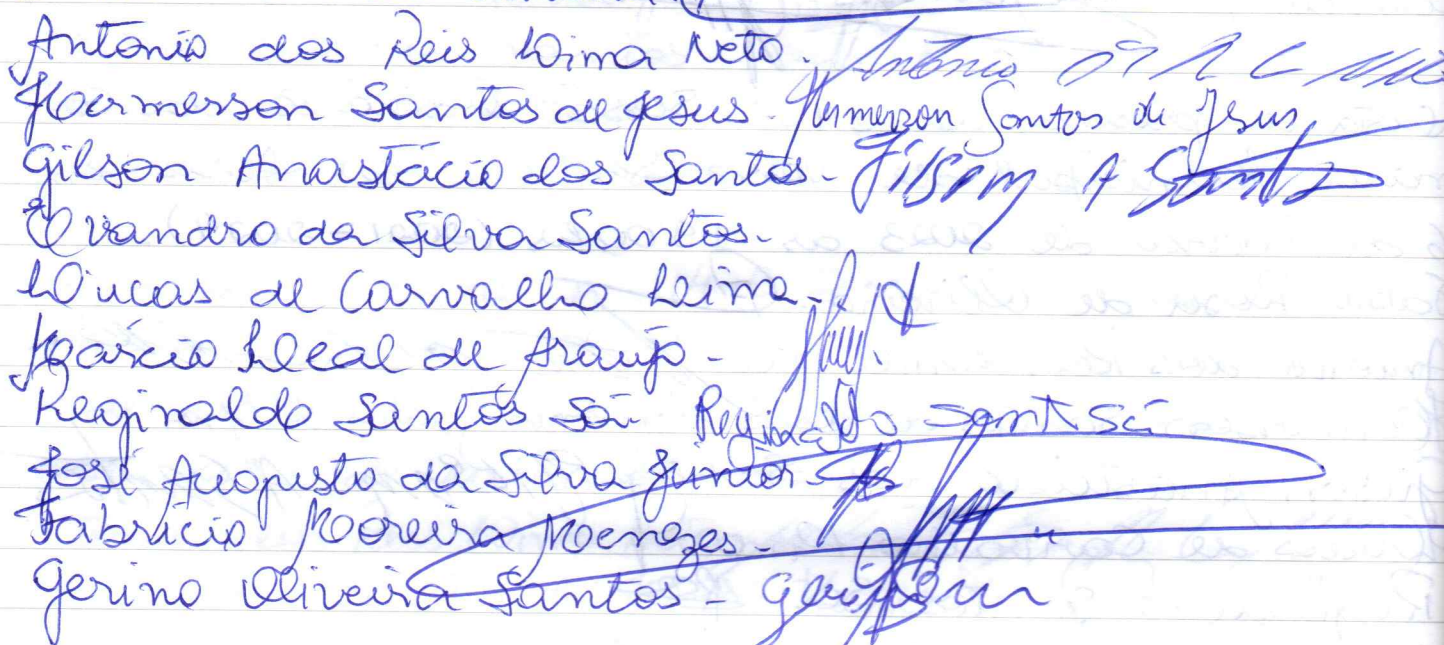 Antonio dos Reis Lima Neto. Antonio
Hermerson Santos de Jesus - Hermerson Santos de Jesus
Gilson Anastácio dos Santos - Gilson A Santos
Evandro da Silva Santos -
Lucas de Carvalho Lima -
Márcio Leal de Araujo -
Reginaldo Santos Sá - Reginaldo Sant Sá
José Augusto da Silva Junior -
Fabricio Moreira Menezes -
Gerino Oliveira Santos -